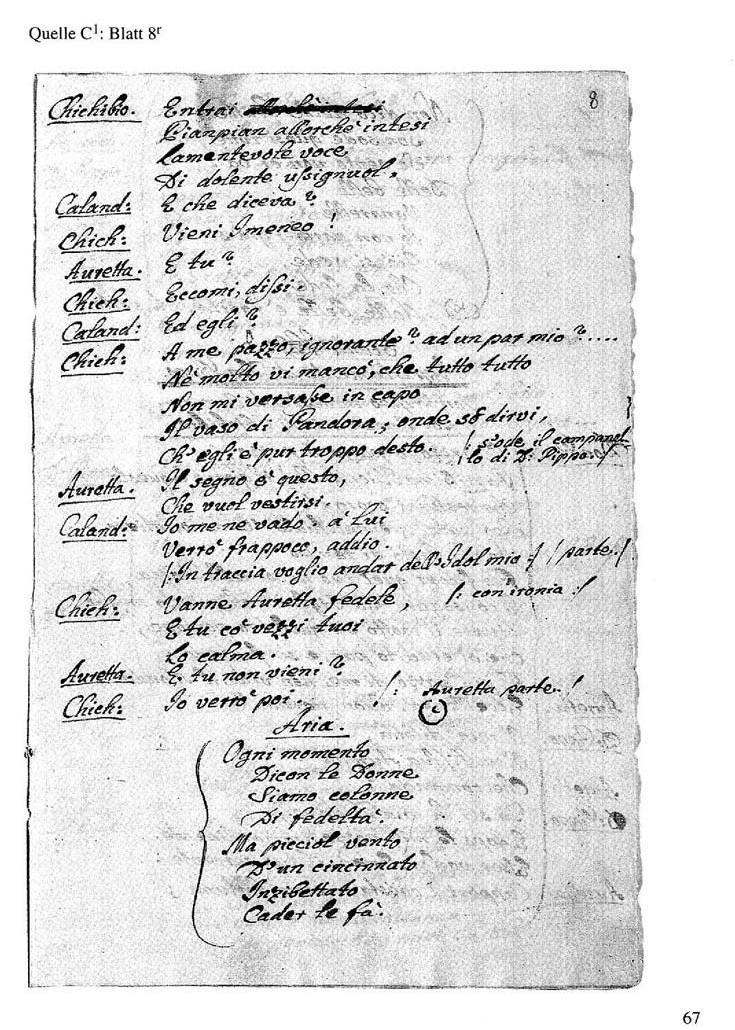 Quelle C1: Blatt 8r
8
Chichibio. Entrai allorchè intesi
Pianpian allorchè intesi
Lamentevole voce
Di dolente ussignuol.
Caland: E che diceva?
Chich: Vieni Imeneo!
Auretta. E tu?
Chich: Eccomi, dissi.
Caland: Ed egli?
Chich: A me pazzo, ignorante? ad un par mio?....
Nè molto vi mancò, che tutto tutto
Non mi versasse in capo
Il vaso di Pandora; onde sò dirvi,
Ch' egli è pur troppo desto. /: s'ode il campanel-
lo di D: Pippo :/
Auretta. Il segno è questo,
Che vuol vestirsi.
Caland: Io me ne vado à lui
Verrò frappoco, addio.
/: In traccia voglio andar dell' Idol mio :/ /parte./
Chich: Vanne Auretta fedele, /: con ironia :/
E tu co' vezzi tuoi
Lo calma.
Auretta. E tu non vieni?
Chich: Io verrò poi. /: Auretta parte. /
Aria.
Ogni momento
Dicon le Donne
Siamo colonne
Di fedeltà.
Ma picciol vento
D'un cincinnato
Inzibettato
Cader le fà.
67